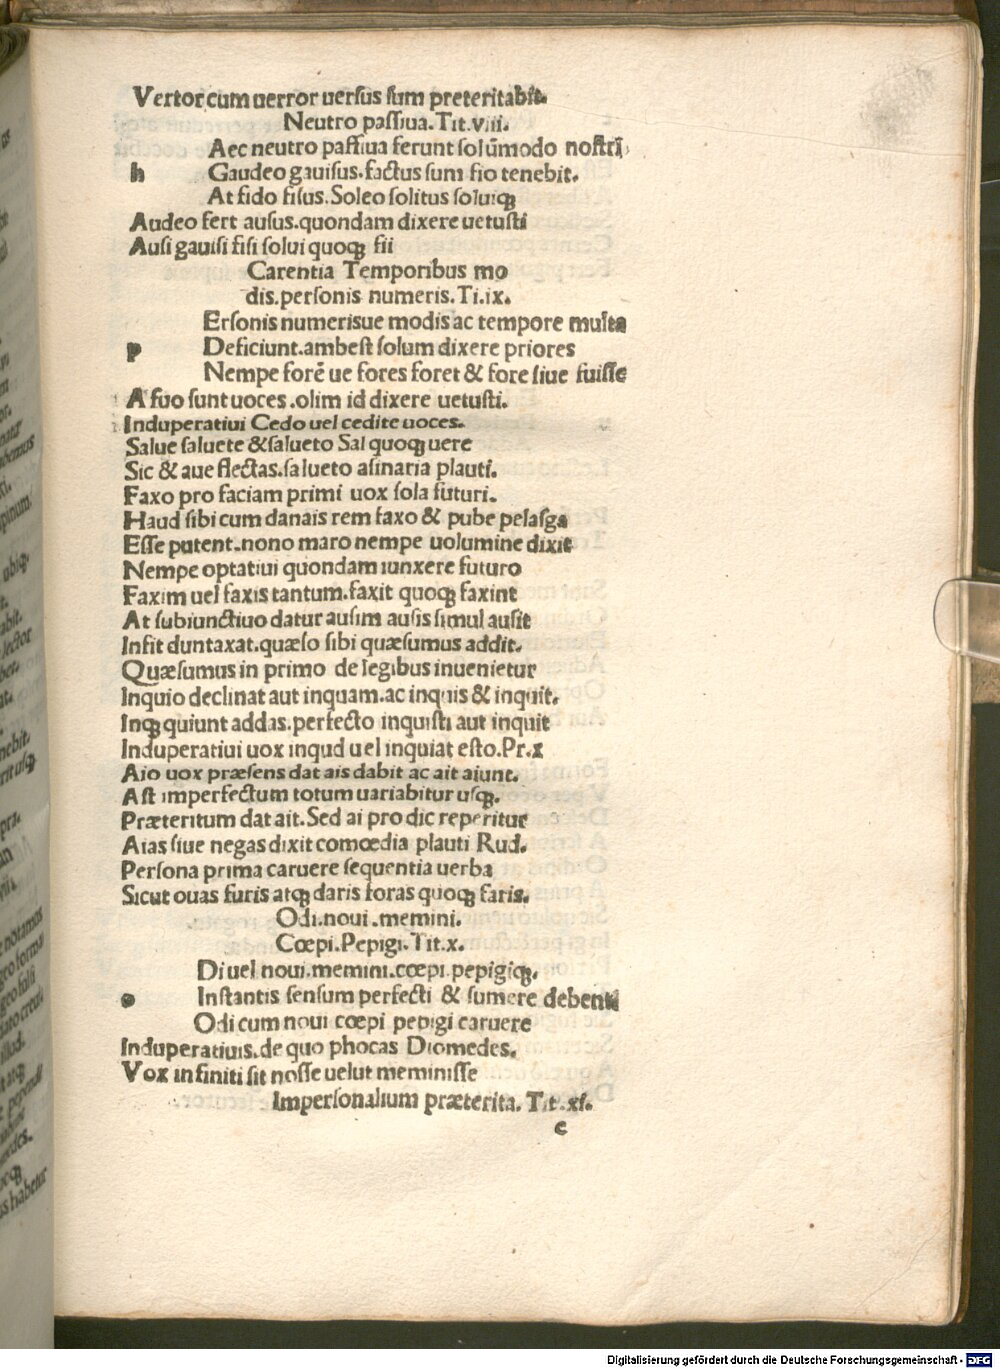 Vertor cum uerror uersus sum preteritabit.
Neutro passiua. Tit. viii.
Aec neutro passiua ferunt solūmodo nostri
h Gaudeo gauisus. factus sum fio tenebit.
At fido fisus. Soleo solitus soluiqꝫ
Audeo fert ausus. quondam dixere uetusti
Ausi gauisi fisi solui quoqꝫ fii
Carentia Temporibus mo
dis. personis numeris. Ti. ix.
Ersonis numerisue modis ac tempore multa
p Deficiunt. ambest solum dixere priores
Nempe forē ue fores foret & fore siue fuisse
A fuo sunt uoces. olim id dixere uetusti.
Induperatiui Cedo uel cedite uoces.
Salue saluete & salueto Sal quoqꝫ uere
Sic & aue flectas. salueto asinaria plauti.
Faxo pro faciam primi uox sola futuri.
Haud sibi cum danais rem faxo & pube pelasga
Esse putent. nono maro nempe uolumine dixit
Nempe optatiui quondam iunxere futuro
Faxim uel faxis tantum. faxit quoqꝫ faxint
At subiunctiuo datur ausim ausis simul ausit
Infit duntaxat. quæso sibi quæsumus addit.
Quæsumus in primo de legibus inuenietur
Inquio declinat aut inquam. ac inquis & inquit.
Inqꝫ quiunt addas. perfecto inquisti aut inquit
Induperatiui uox inqud uel inquiat esto. Pr. x
Aio uox præsens dat ais dabit ac ait aiunt.
Ast imperfectum totum uariabitur usqꝫ.
Præteritum dat ait. Sed ai pro dic reperitur
Aias siue negas dixit comœdia plauti Rud.
Persona prima caruere sequentia uerba
Sicut ouas furis atqꝫ daris foras quoqꝫ faris.
Odi. noui. memini.
Cœpi. Pepigi. Tit. x.
Di uel noui. memini. cœpi pepigiqꝫ.
o Instantis sensum perfecti & sumere debent
Odi cum noui cœpi pepigi caruere
Induperatiuis. de quo phocas Diomedes.
Vox infiniti sit nosse uelut meminisse
Impersonalium præterita. Tit. xi.
c
Digitalisierung gefördert durch die Deutsche Forschungsgemeinschaft - DFG